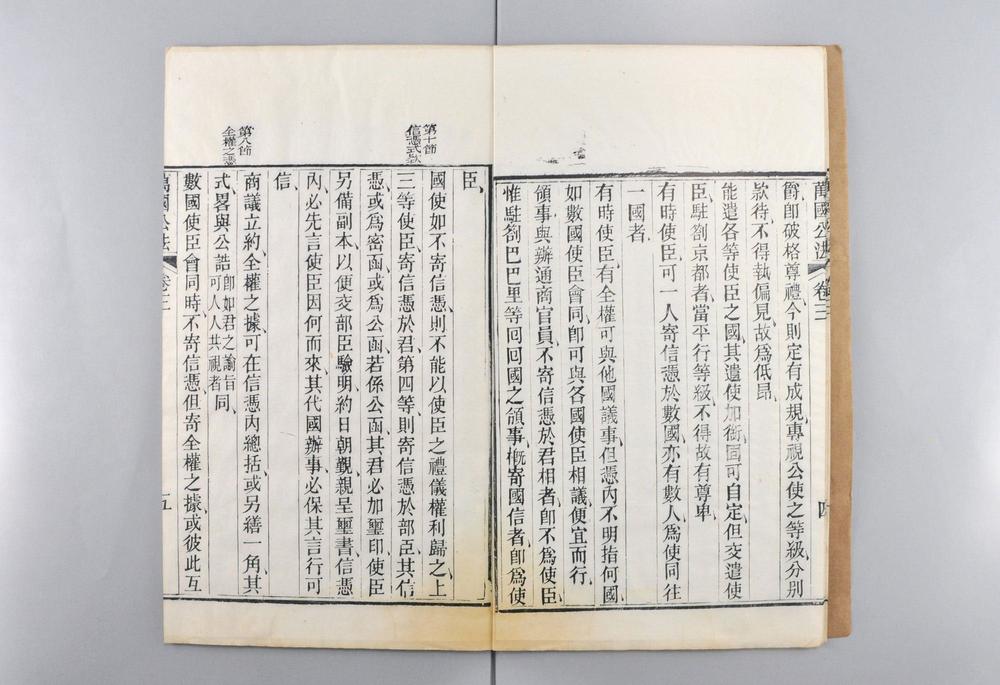 萬國公法 卷三 四
爵卽破格尊禮今則定有成規專視公使之等級分別
款待不得執偏見故爲低昂
能遣各等使臣之國其遣使加銜固可自定但交遣使
臣駐劄京都者當平行等級不得故有尊卑
有時使臣可一人寄信憑於數國亦有數人爲使同往
一國者
有時使臣有全權可與他國議事但憑內不明指何國
如數國使臣會同卽可與各國使臣相議便宜而行
領事與辦通商官員不寄信憑於君相者卽不爲使臣
惟駐劄巴巴里等回回國之領事槪寄國信者卽爲使
臣
第七節
信憑式款
國使如不寄信憑則不能以使臣之禮儀權利歸之上
三等使臣寄信憑於君第四等則寄信憑於部臣其信
憑或爲密函或爲公函若係公函其君必加璽印使臣
另備副本以便交部臣驗明約日朝覲親呈璽書信憑
內必先言使臣因何而來其代國辦事必保其言行可
信
第八節
全權之憑
商議立約全權之據可在信憑內總括或另繕一角其
式畧與公誥卽如君之諭旨可人人共視者同
數國使臣會同時不寄信憑但寄全權之據或彼此互
萬國公法 卷三 五